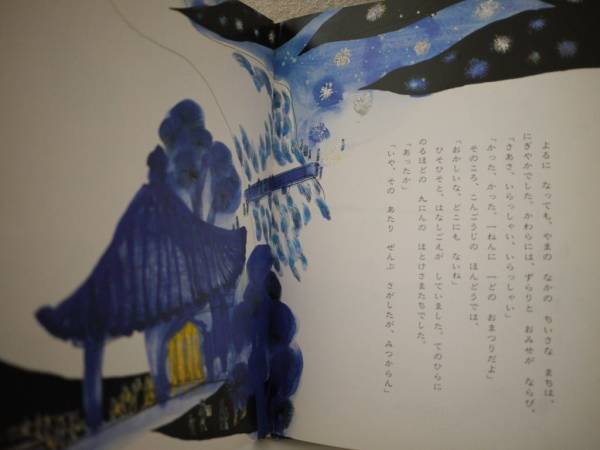 よるに なっても、やまの なかの ちいさな まちは、
にぎやかでした。かわらには、ずらりと おみせが ならび、
「さあさ、いらっしゃい、いらっしゃい」
「かった、かった。一ねんに 一どの おまつりだよ」
そのころ、こんごうじの ほんどうでは、
「おかしいな、どこにも ないね」
ひそひそと、はなしごえが していました。てのひらに
のるほどの 九にんの ほとけさまたちでした。
「あったか」
「いや、その あたり ぜんぶ さがしたが、みつからん」